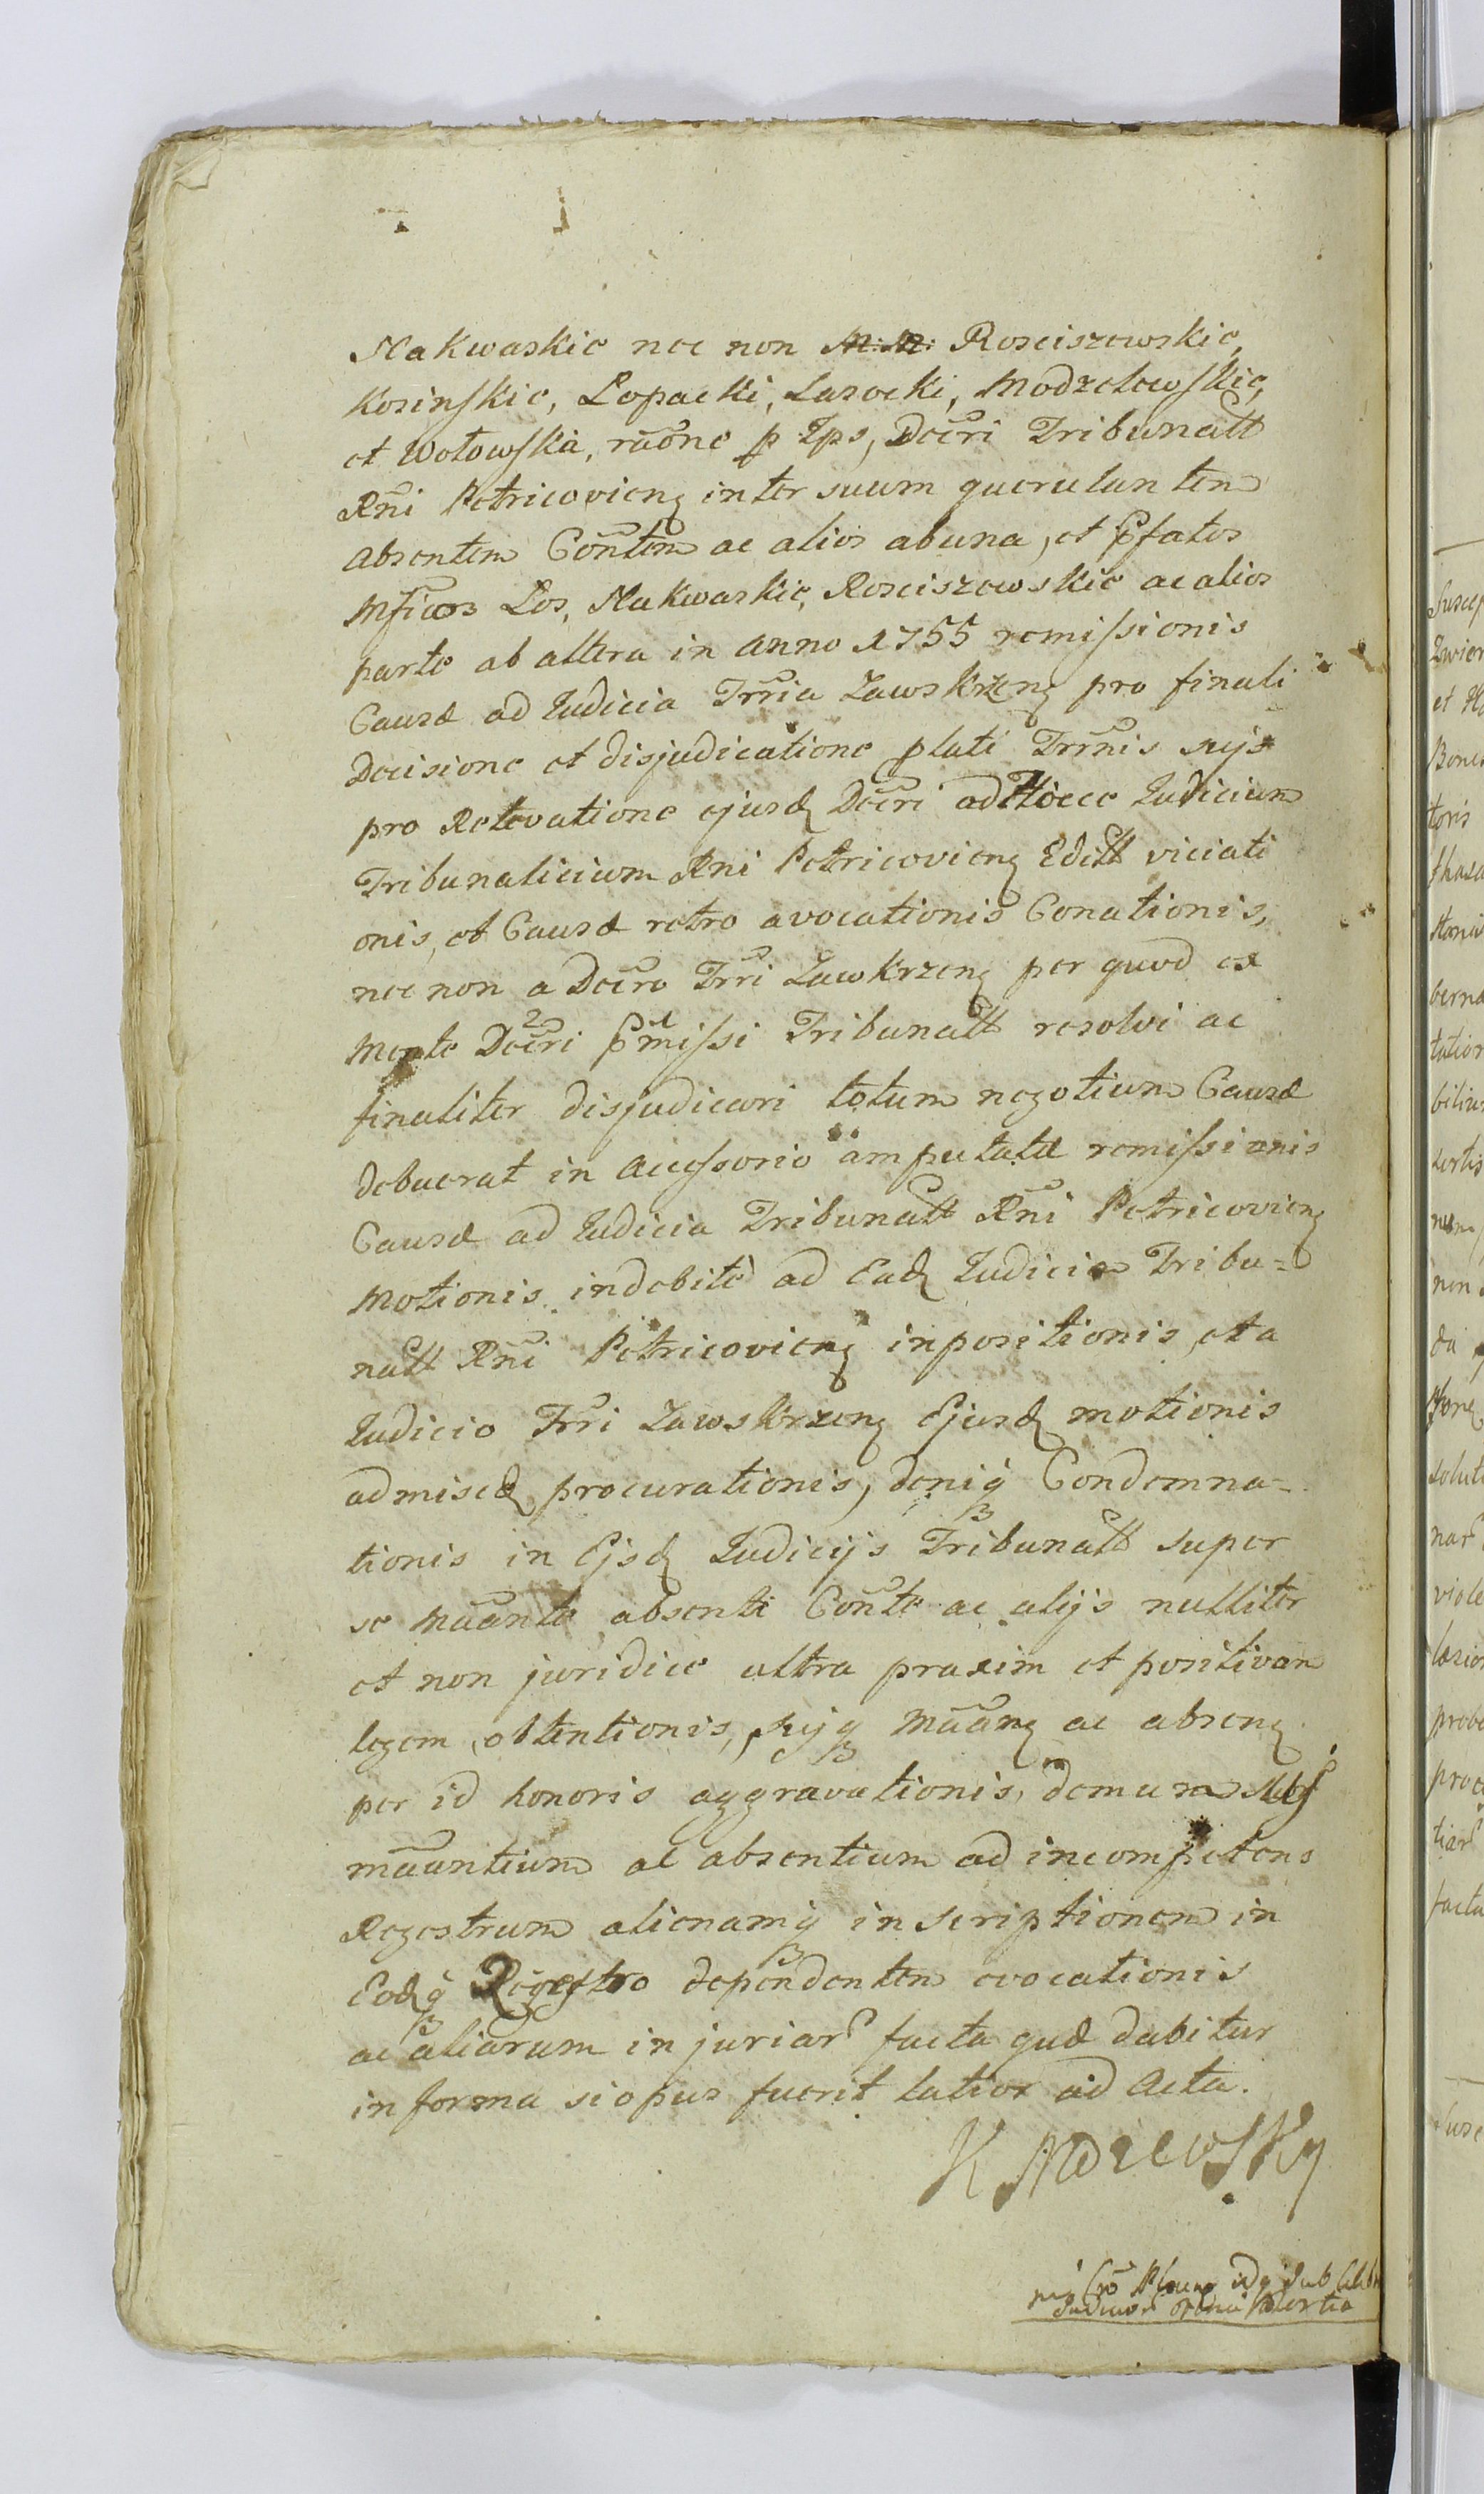 Nakwaskie nec non M. M. Rosciszewskie,
Kosinskie, Lopacki, Lasocki, Modzelewskie,
et Wołowska, raone p Ips, Decri Tribunall
Rni Petricovien inter suum querulantem
absentem Contem ac alios abuna, et Pfatos
Mficos Łos, Nakwaskie, Rosciszewskie ac alios
parte ab altera in Anno 1755 remissionis
Causæ ad Iudicia Trria Zawskrzen pro finali
Decisione et disjudicatione plati Trrnis sujs
pro Relevatione ejusd Decri ad Hocce Iudicium
Tribunalicium Rni Petricovien Editt viciati
onis, et Causæ retro avocationis Conationis,
nec non a Decro Trri Zawkrzen per quod ex
Mente Decri Pmissi Tribunall resolvi ac
finaliter disjudicari totum negotium Causæ
debuerat in accessorio amputatæ remissionis
Causæ ad Iudicia Tribunall Rni Petricovien
Motionis indebitè ad Ead Iudicia Tribu=
nall Rni Petricovien inpositionis, et a
Iudicio Trri Zawskrzen Ejusd motionis
admisce procurationis, deniq Condemna=
tionis in Ejsd Iudicijs Tribunall super
se Maante absente Conte ac alijs nulliter
et non juridice ultra praxim et positivam
legem obtentionis, sujq Maan ac absen
per id honoris aggravationis, demum
maantium ac absentium ad incompetens
Regestrum alienamq inscriptionem in
Eodq Regestro dependentem evocationis
ac aliarum injuriar facta quæ dabitur
in forma si opus fuerit latior ad Acta.
K Ndzewsky